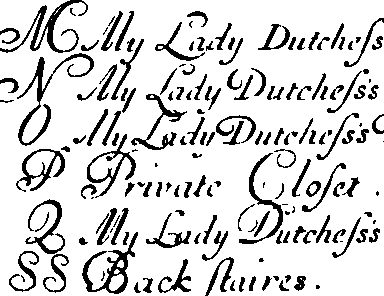 M My Lady Dutcheſs
N My Lady Dutcheſs's
O My Lady Dutcheſs's
P Private Cloſet .
Q My Lady Dutcheſs's
SS Back ſtaires .